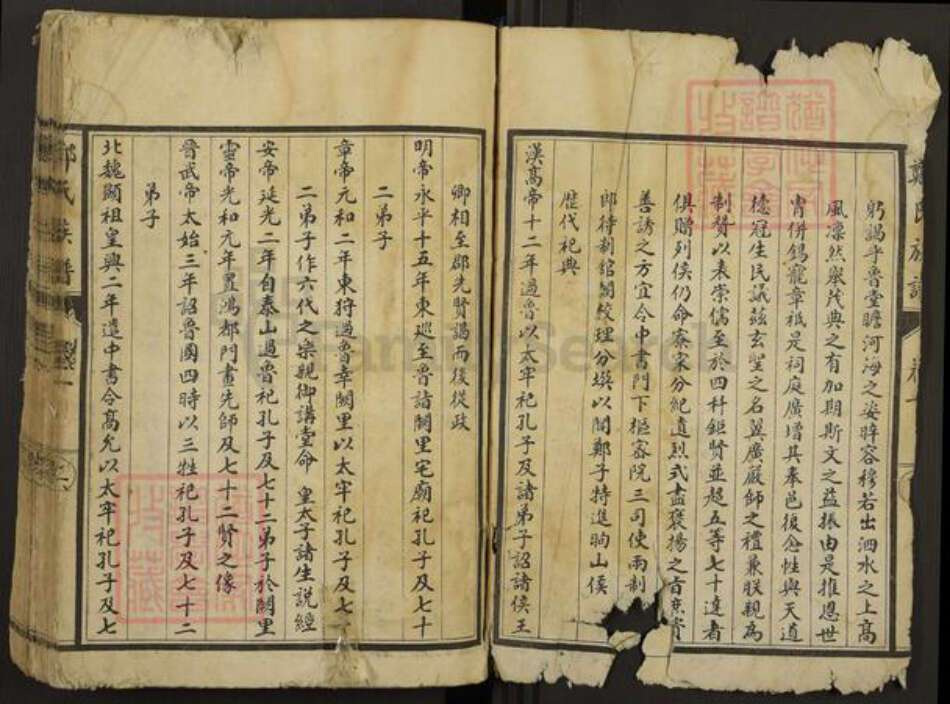 躬謁乎魯堂瞻河海之姿睟容穆若出泗水之上高
風凛然舉茂典之有加期斯文之益振由是推恩世
胄併錫寵章祗是祠庭廣增其奉邑復念性與天道
德冠生民議茲玄聖之名冀廣嚴師之禮兼朕親爲
制贊以表崇儒至於四科鉅賢並超五等七十達者
俱贈列侯仍命寮宷分紀遺烈式盡褒揚之旨庶資
善誘之方宜令中書門下樞密院三司使兩制
郎待制舘閣校理分撰以聞鄭子特進朐山侯
歷代祀典
漢高帝十二年過魯以太牢祀孔子及諸弟子詔諸侯王
卿相至郡先賢謁而後從政
明帝永平十五年東巡至魯詣闕里宅廟祀孔子及七十
二弟子
章帝元和二年東狩過魯幸闕里以太牢祀孔子及七十
二弟子作六代之樂親御講堂命皇太子諸生說經
安帝延光二年自泰山過魯祀孔子及七十二弟子於闕里
靈帝光和元年置鴻都門畫先師及七十二賢之像
晉武帝太始三年詔魯國四時以三牲祀孔子及七十二
弟子
北魏顯祖皇興二年遣中書令高允以太牢祀孔子及七
氏族譜